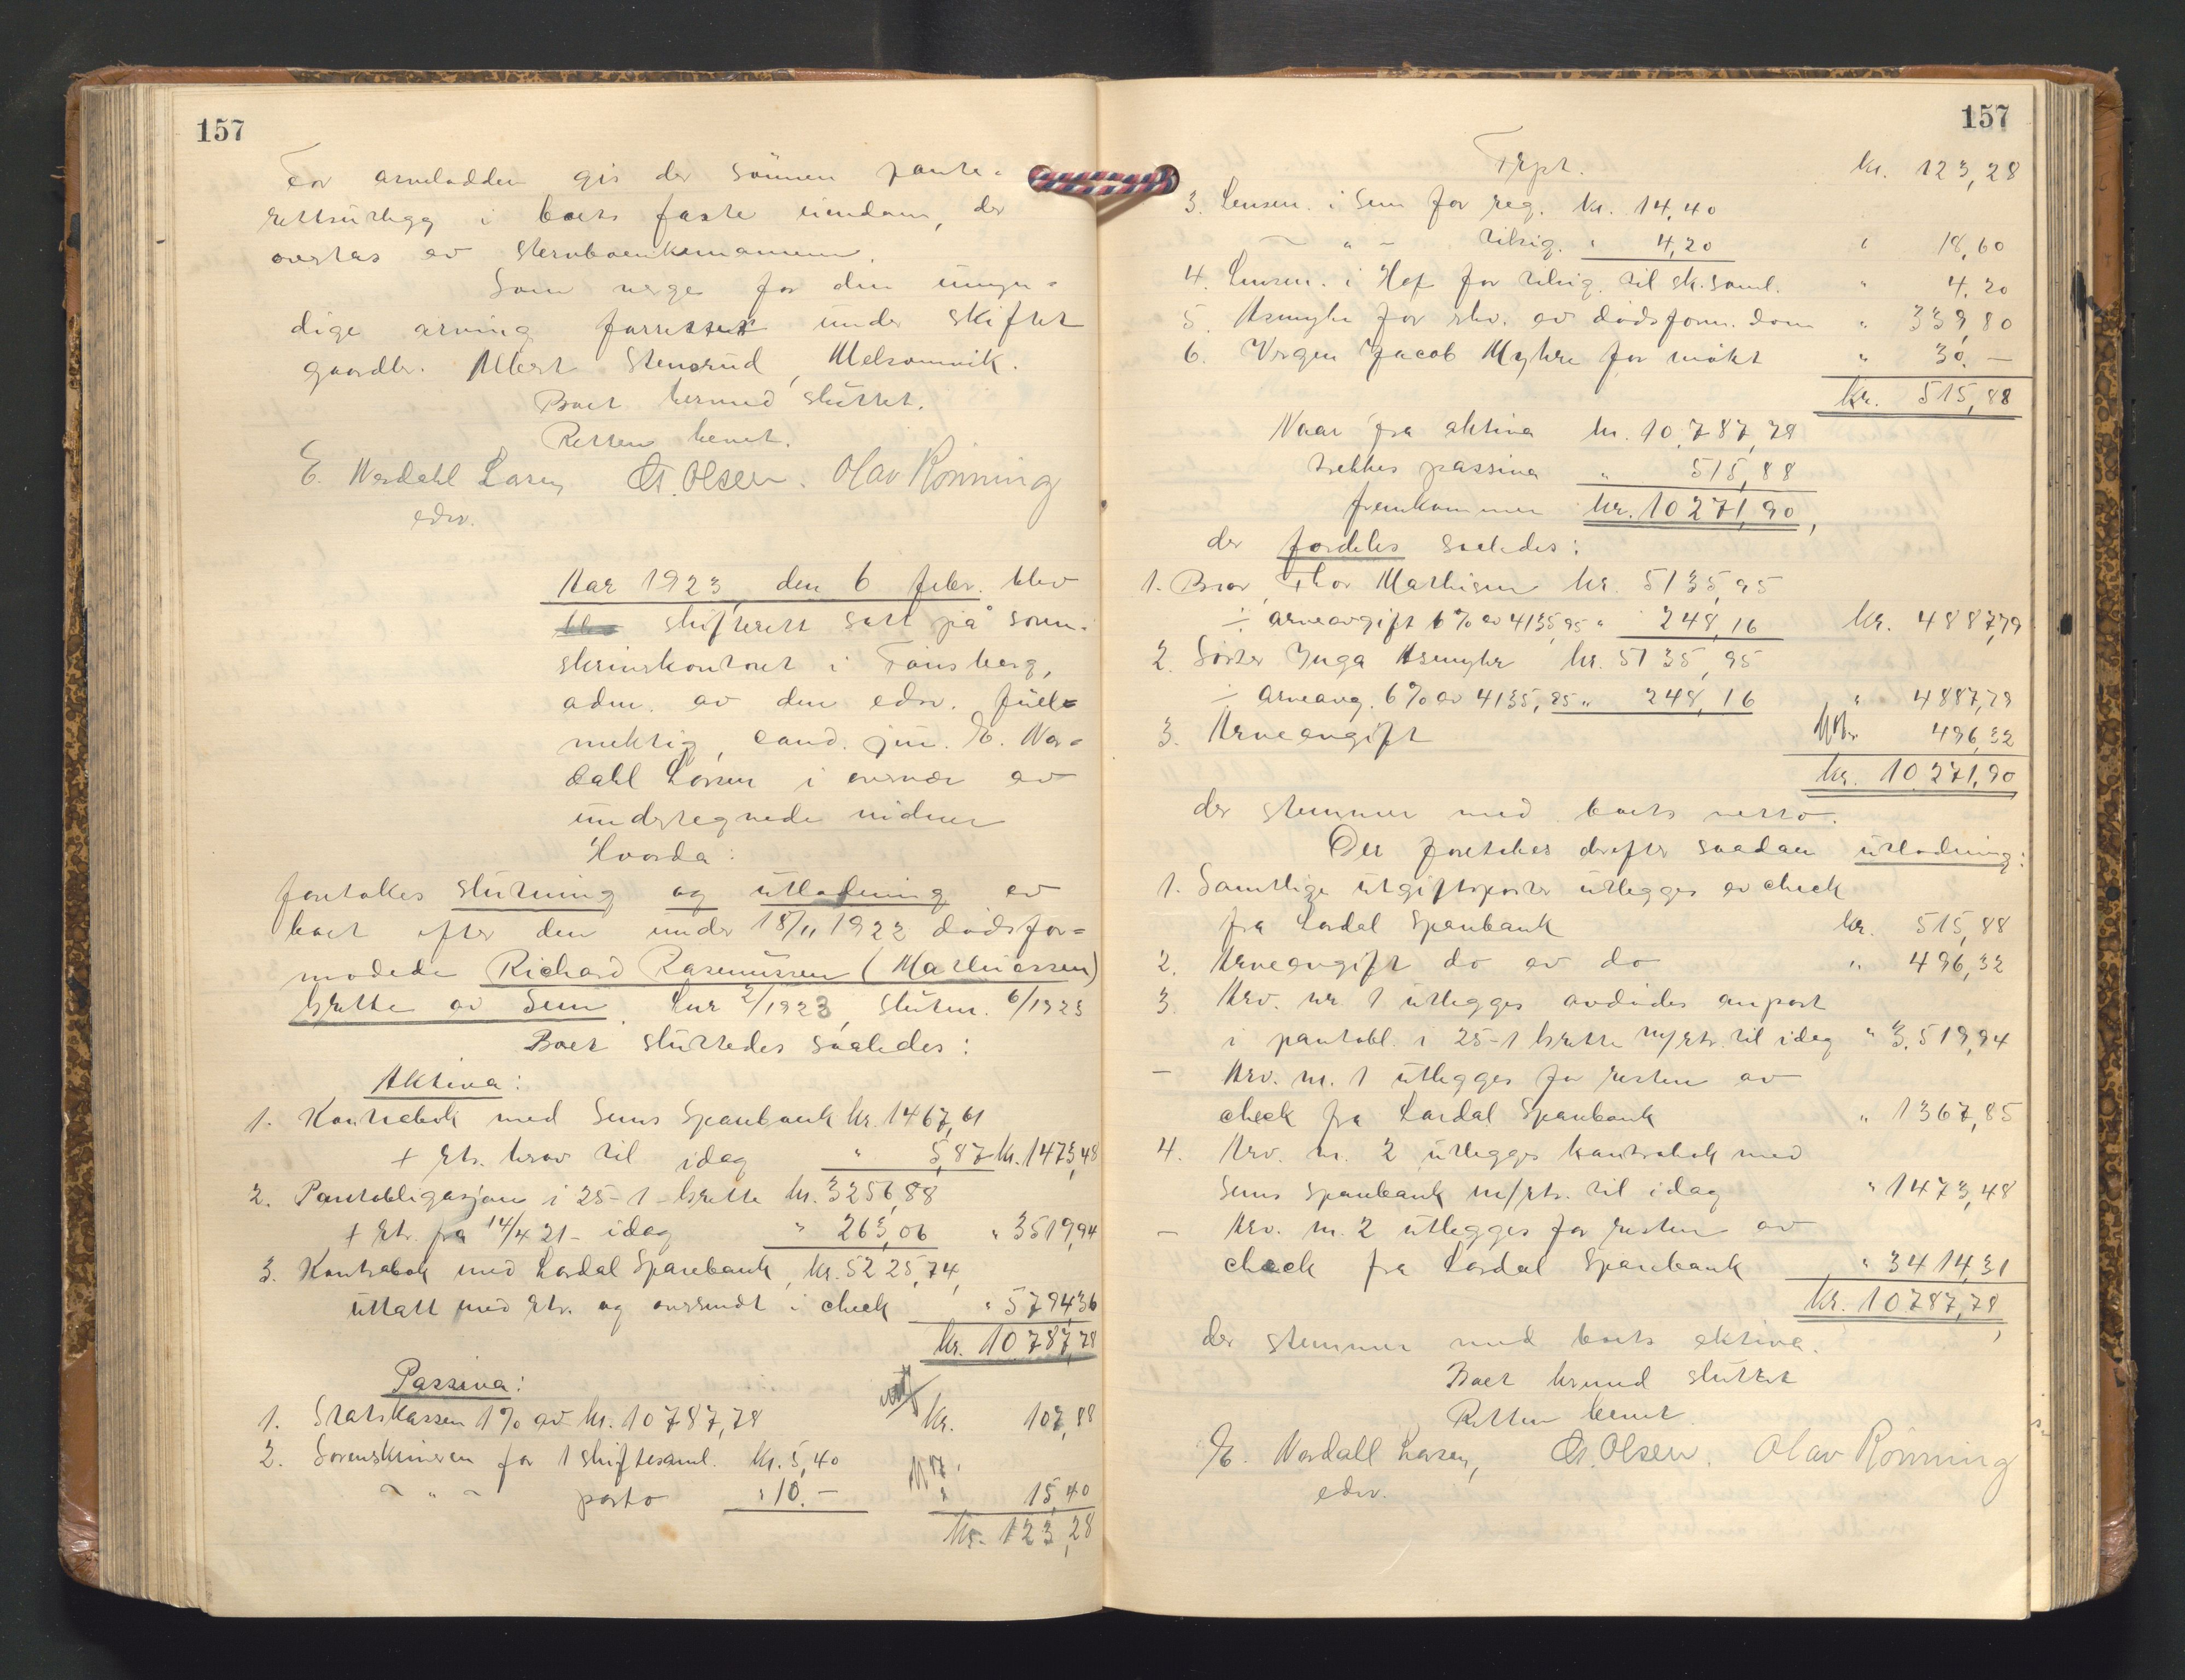 157
For arvelodden gis der sönnen pante-
rettsutlegg i boets faste eiendom, der
overtas av stervboenkemannen.
Som verge for den umyn-
dige arving forretter under skiftet
gaardbr. Albert Stensrud, Melsomvik.
Boet hermed sluttet.
Retten hevet.
E. Nordahl Larsen G. Olsen. Olav Rönning
edsv.
Aar 1923 den 6 febr. blev
skifterett satt på soren-
skriverkontoret i Tönsberg,
adm. av den edsv. full-
mektig, cand. jur. E. Nor-
dahl Larsen i overvær av
undertegnede vidner
Hvorda:
foretokes slutning og utlodning av
boet efter den under 18/11 1922 dödsfor-
modede Richard Rasmussen (Mathiassen)
Brette av Sem. 2/1923, slutn. 6/1923
Boet sluttedes saaledes:
Aktiva:
1. Kontrabok med Sems Sparebank kr. 1467,61
+ rtr. herav til idag " 5,87 kr. 1473,48
2. Pantobligasjon i 25-1 Brette kr. 3256,88
+ rtr. fra 14/4 21 - idag " 263,06 " 3519,94
3. Kontrabok med Lardal Sparebank, kr. 5225,74,
uttatt med rtr. og oversendt i check " 5794,36
kr. 10 787,78
Passiva:
1. Statskassen 1% av kr. 10787,78 kr. 107,88
2. Sorenskriveren for 1 skiftesaml. kr. 5,40
~ " ~ porto " 10.- " 15,40
kr. 123,28
157
Trpt. kr. 123,28
3. Lensm. i Sem for reg. kr. 14,40
~ " - tilsig. " 4,20 " 18,60
4. Lensm. i Hof for tilsig. til sk.saml. " 4,20
5. Asmyhr for rekv. av dödsform. dom " 339,80
6. Vergen Jacob Myhre for mökt " 30.-
kr. 515,88
Naar fra aktiva kr. 10.787,78
trekkes passiva " 515,88
fremkommer kr. 10271,90,
der fordeles saaledes:
1. Bror, Thor Mathisen kr. 5135,95
÷ arveavgift 6% av 4135,95 " 248,16 kr. 4887,79
2. Söster Inga Asmyhr kr. 5135,95
÷ arveavg. 6% av 4135,95 " 248,16 " 4887,79
3. Arveavgift 496,32
kr. 10.271,90
der stemmer med boets netto.
Der foretokes derefter saadan utlodning:
1. Samtlige utgiftsposter utlegges av check
fra Lardal Sparebank kr. 515,88
2. Arveavgift do av do " 496,32
3. Arv. nr. 1 utlegges avdödes anpart
i pantobl. i 25-1 Brette m/rtr. til idag " 3.519,94
- Arv. nr. 1 utlegges for resten av
check fra Lardal Sparebank " 1367,85
4. Arv. nr. 2 utlegges kontrabok med
Sems Sparebank m/rtr. til idag " 1473,48
- Arv. nr. 2 utlegges for resten av
check fra Lardal Sparebank " 3414,31
kr. 10787,78,
der stemmer med boets aktiva.
Boet hermed sluttet
Retten hevet.
E. Nordahl Larsen, G. Olsen. Olav Rönning
edsv.